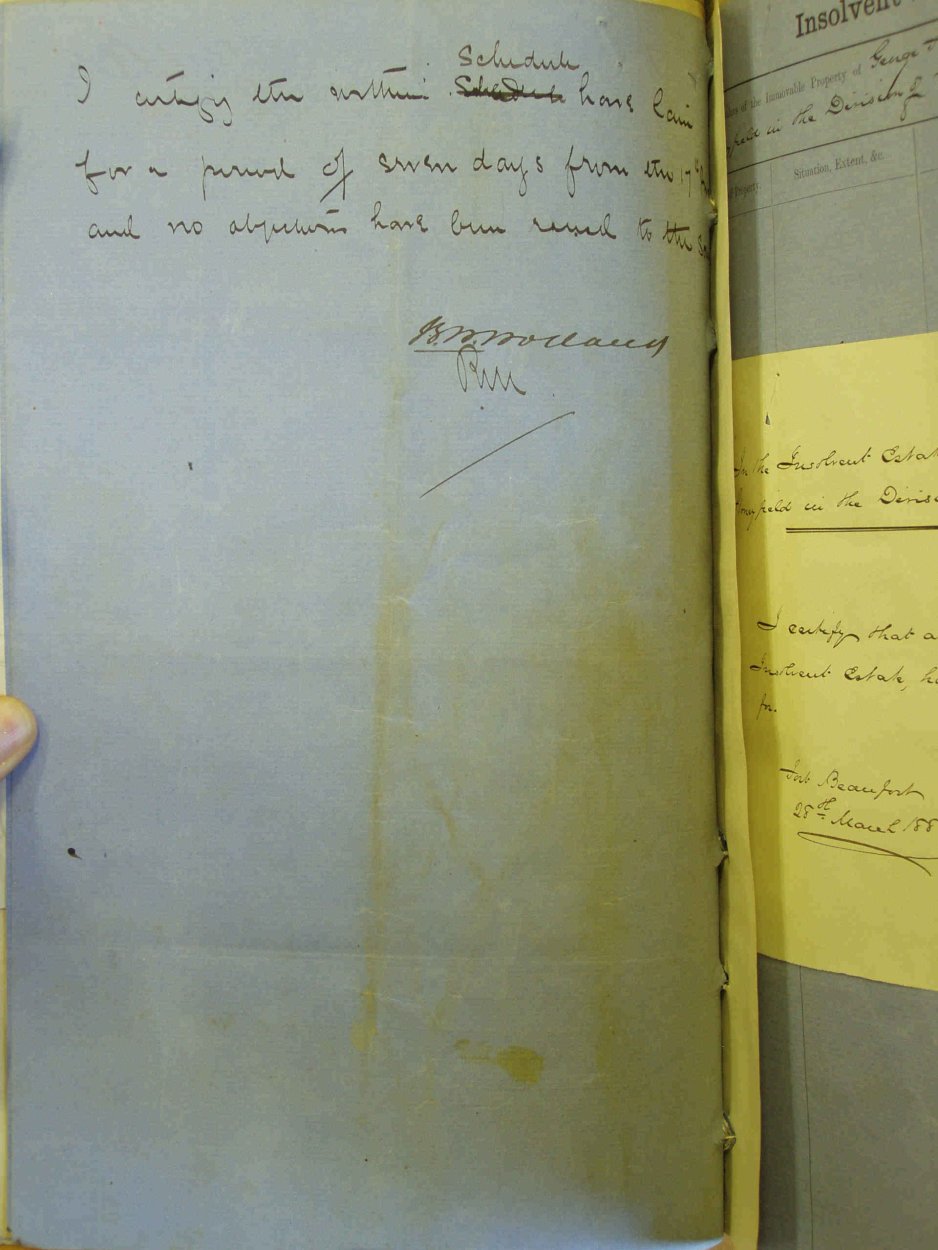 Schedule
I certify the within Schedule have lain
for a period of seven days from the 17th
and no objections have been raised to the
B. W. Holland
RM
Insolvent
of the Immovable Property of George
field in the Division of
Property.
Situation, Extent, &c.
In the Insolvent Estate
field in the Divis
I certify that a
Insolvent Estate, h
for.
Fort Beaufort
28th March 188